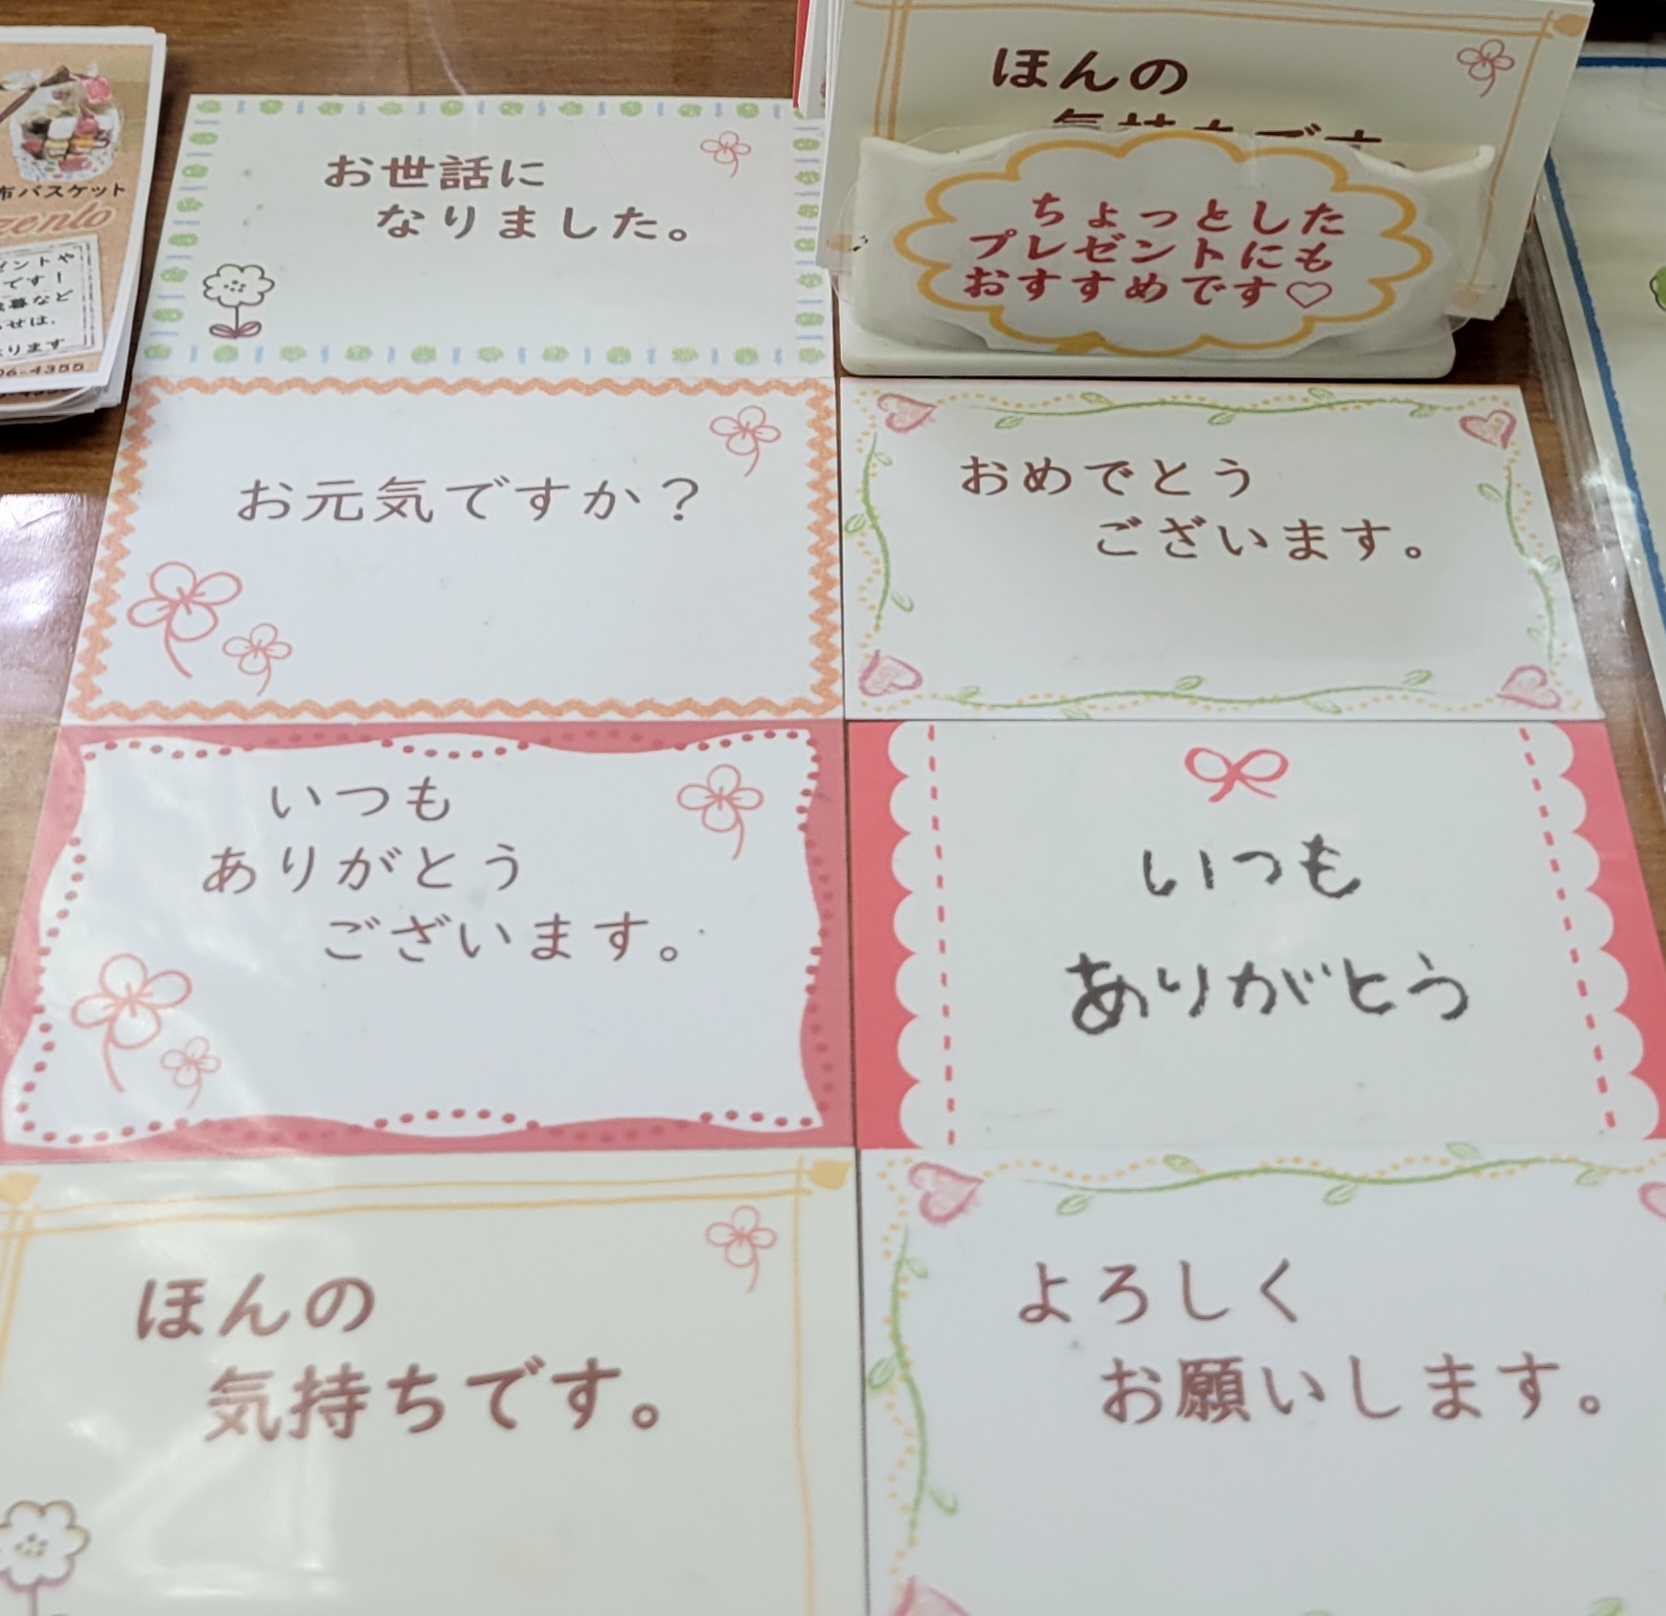 布バスケット
ゼントや
です！
など
せは、
ります
06-4355
お世話に
なりました。
ほんの
気持ちです。
ちょっとした
プレゼントにも
おすすめです♡
お元気ですか？
おめでとう
ございます。
いつも
ありがとう
ございます。
いつも
ありがとう
ほんの
気持ちです。
よろしく
お願いします。